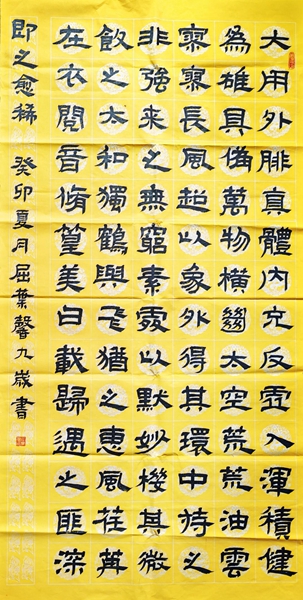 大用外腓真體內充反虛入渾積健
為雄具備萬物橫絕太空荒荒油雲
寥寥長風超以象外得其環中持之
非強來之無窮素處以默妙機其微
飲之太和獨鶴與飛猶之惠風荏苒
在衣閱音脩篁美曰載歸遇之匪深
即之愈稀 癸卯夏月屈葉馨九歲書